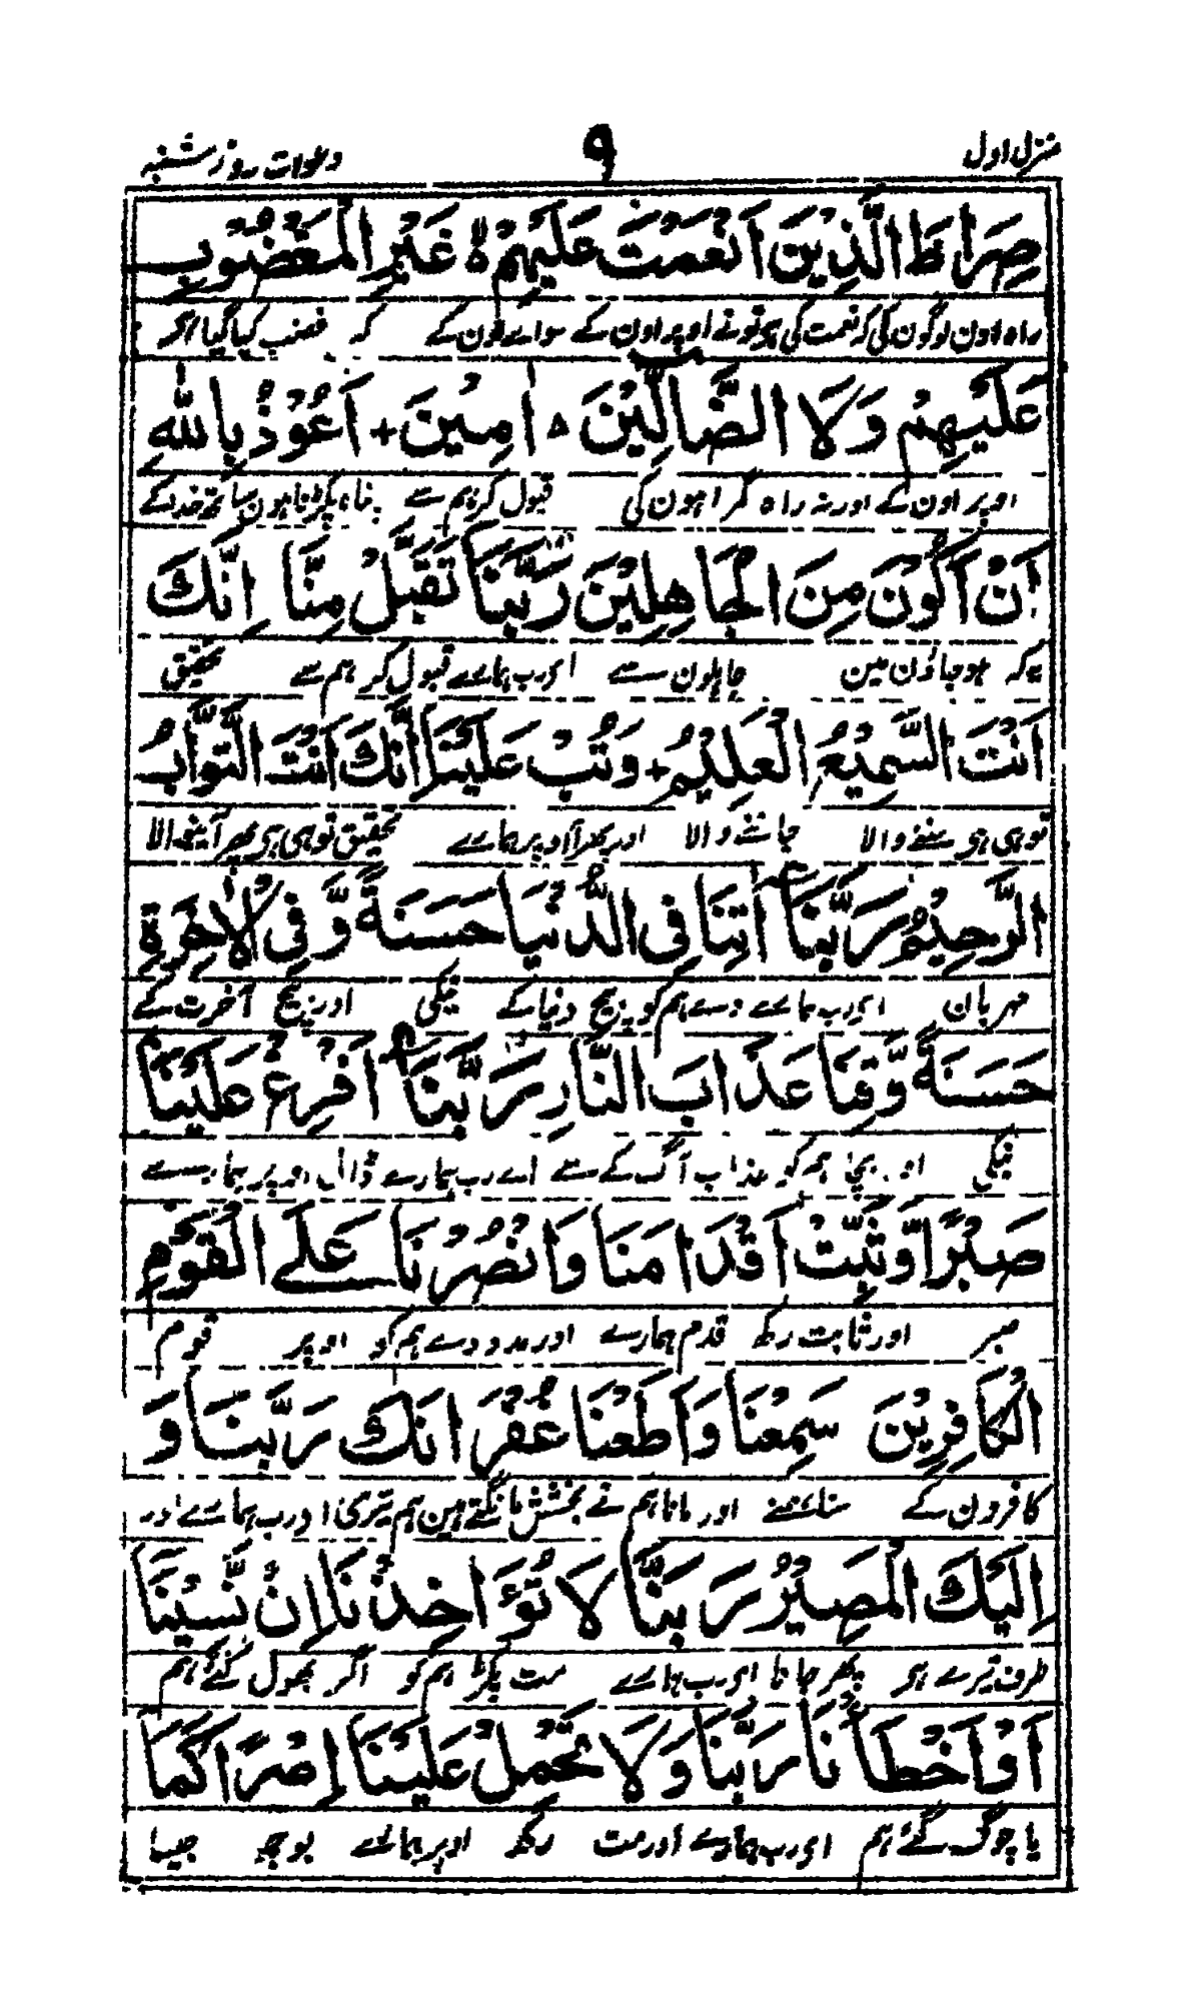 منزل اول ۹ دعوات روز شنبہ
صِرَاطَ الَّذِيْنَ اَنْعَمْتَ عَلَيْهِمْ ۙ غَيْرِ الْمَغْضُوْبِ
راہ اون لوگون کی کہ نعمت کی ہی تونے اوپر اون کے سواے اون کے کہ غضب کیا گیا ہی
عَلَيْهِمْ وَلَا الضَّالِّيْنَ اٰمِيْنَ + اَعُوْذُ بِاللّٰهِ
اوپر اون کے اور نہ راہ گمراہون کی قبول کر ہم سے پناہ پکڑتا ہون ساتھ خدا کے
اَنْ اَكُوْنَ مِنَ الْجَاهِلِيْنَ رَبَّنَا تَقَبَّلْ مِنَّا اِنَّكَ
یہ کہ ہوجاؤن مین جاہلون سے ای رب ہمارے قبول کر ہم سے تحقیق
اَنْتَ السَّمِيْعُ الْعَلِيْمُ + وَتُبْ عَلَيْنَا اِنَّكَ اَنْتَ التَّوَّابُ
توہی ہی سننے والا جاننے والا اور پھر آ اوپر ہمارے تحقیق توہی ہی پھر آنیوالا
الرَّحِيْمُ رَبَّنَا اٰتِنَا فِى الدُّنْيَا حَسَنَةً وَّفِى الْاٰخِرَةِ
مہربان ای رب ہمارے دے ہم کو بیچ دنیا کے نیکی اور بیچ آخرت کے
حَسَنَةً وَّقِنَا عَذَابَ النَّارِ رَبَّنَا اَفْرِغْ عَلَيْنَا
نیکی اور بچا ہم کو عذاب آگ کے سے اے رب ہمارے ڈال اوپر ہمارے
صَبْرًا وَّثَبِّتْ اَقْدَامَنَا وَانْصُرْنَا عَلَے الْقَوْمِ
صبر اور ثابت رکھ قدم ہمارے اور مدد دے ہم کو اوپر قوم
الْكَافِرِيْنَ سَمِعْنَا وَاَطَعْنَا غُفْرَانَكَ رَبَّنَا وَ
کافرون کے سنا ہمنے اور مانا ہم نے بخشش مانگتے ہین ہم تیری ای رب ہمارے اور
اِلَيْكَ الْمَصِيْرُ رَبَّنَا لَا تُؤَاخِذْنَا اِنْ نَّسِيْنَا
طرف تیرے ہی پھر جانا ای رب ہمارے مت پکڑ ہم کو اگر بھول گئے ہم
اَوْ اَخْطَأْنَا رَبَّنَا وَلَا تَحْمِلْ عَلَيْنَا اِصْرًا كَمَا
یا چوک گئے ہم ای رب ہمارے اور مت رکھ اوپر ہمارے بوجھ جیسا